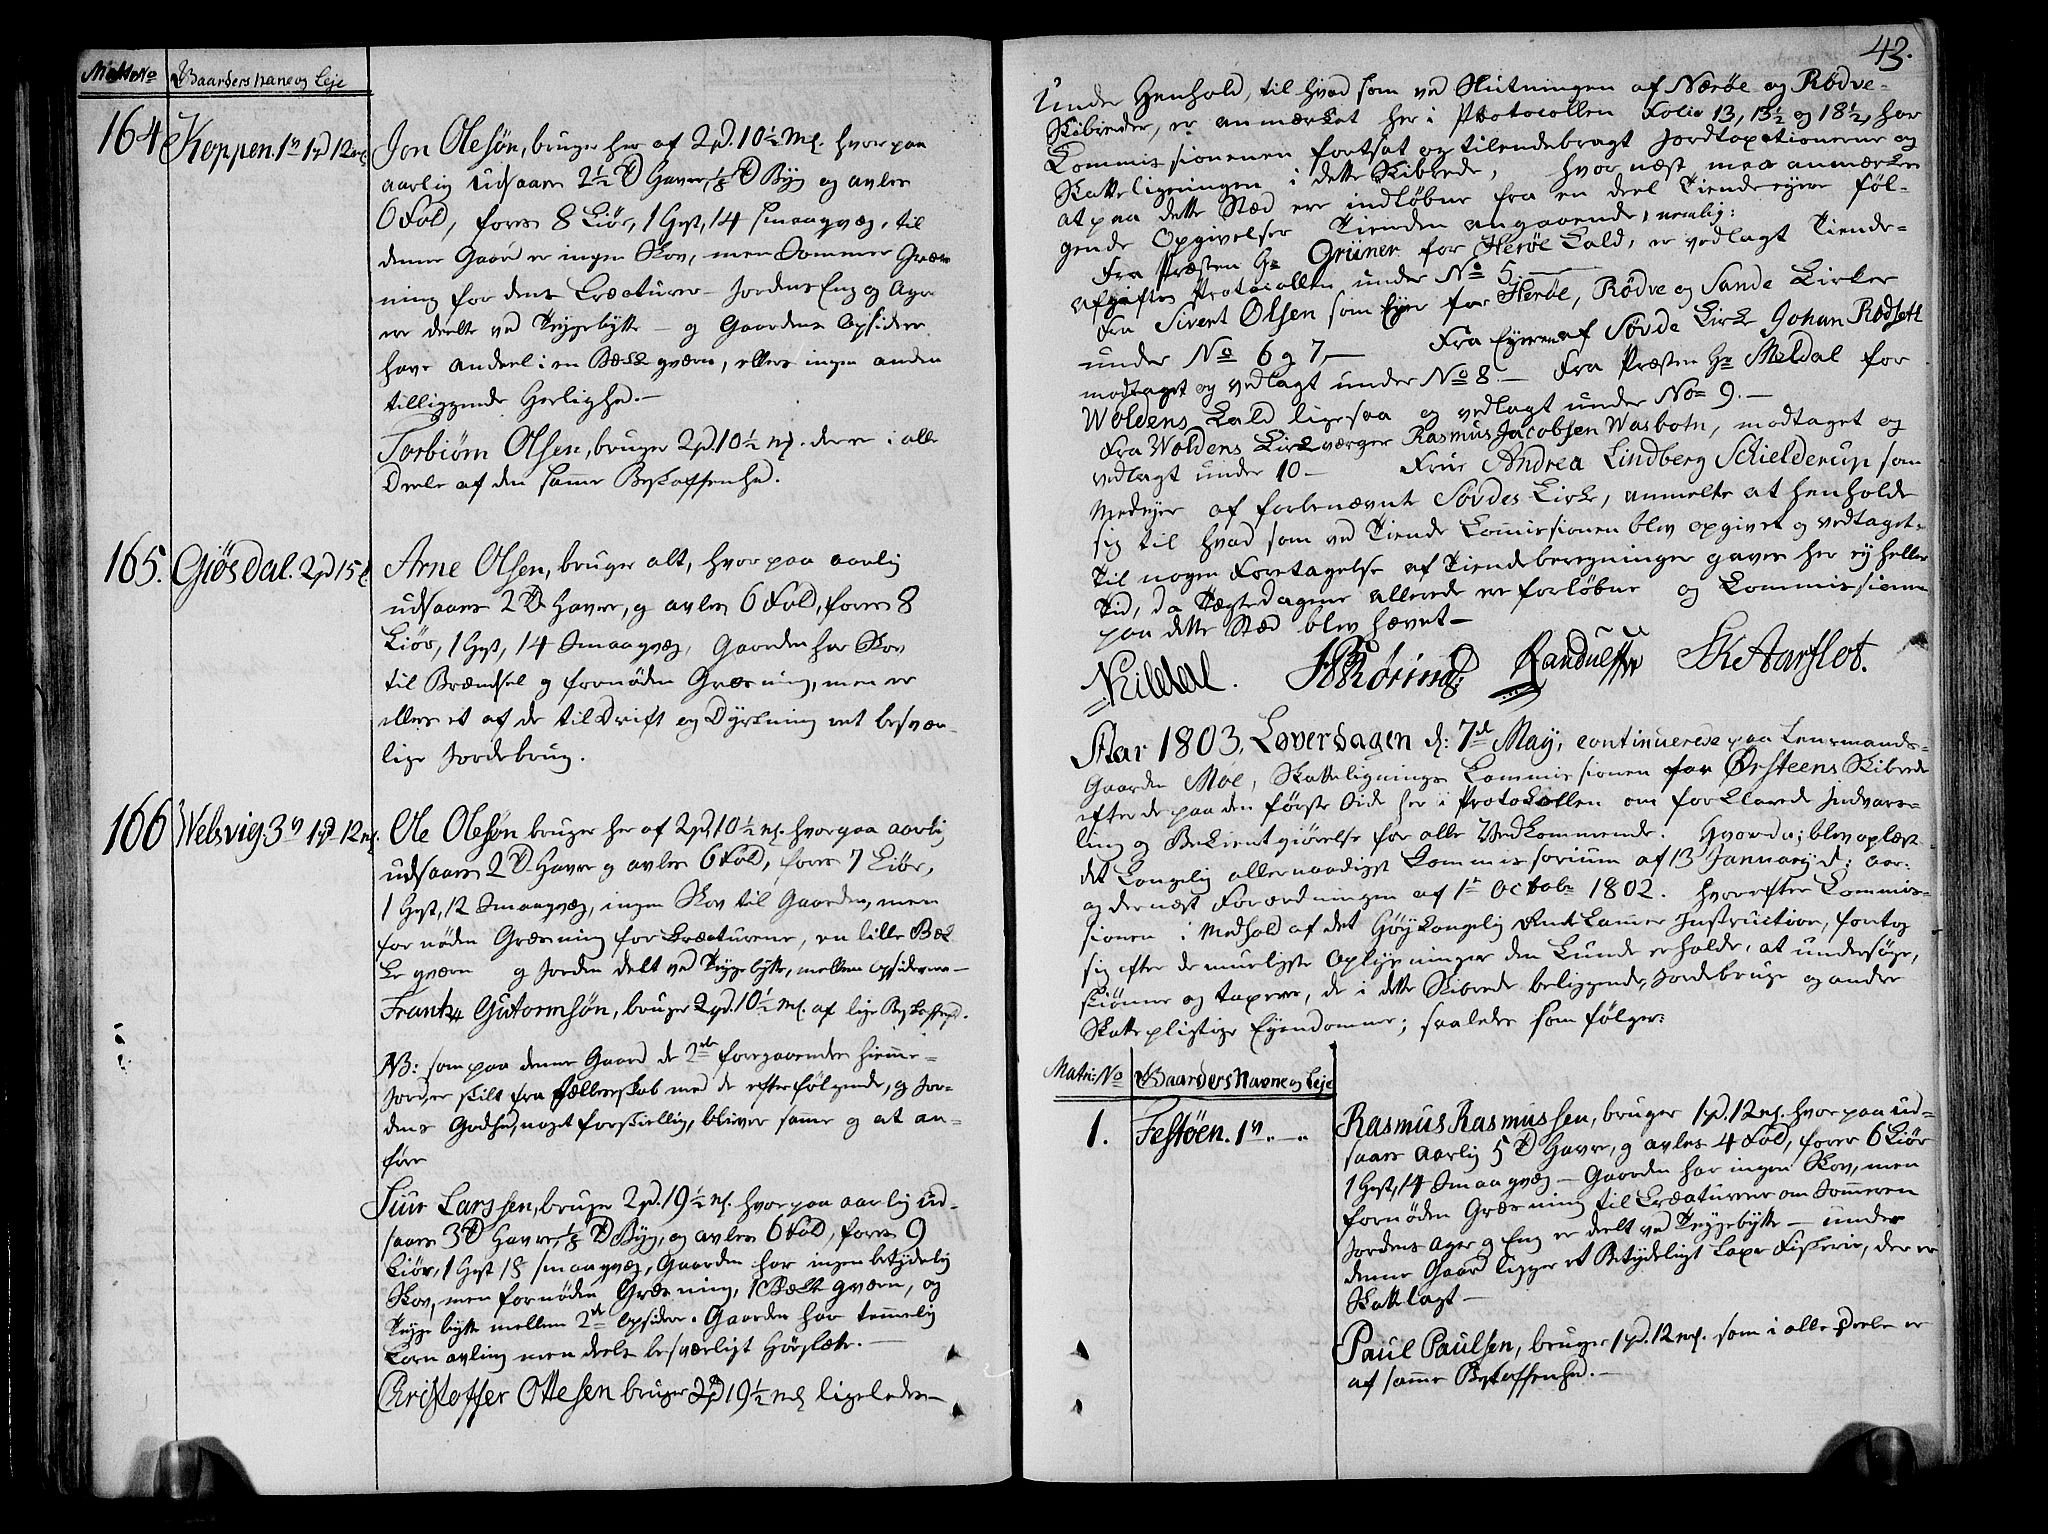 Matr: No Gaarders Navne og Leje
164 Koppen. 1 v 1 pd 12 mk
Jon Olesøn, bruger her af 2 pd. 10½ mk. hvorpaa
aarlig udsaaes 2½ Td Havre, ⅛ Td Byg og avles
6 Fold, føres 8 Kiør, 1 Hest, 14 smaaqvæg, til
denne Gaard er ingen Skov, men Sommer Græs-
ning for dens Creaturer – Jordens Eng og Ager
er deelte ved Teygebytte – og Gaardens Opsidere
have andeel i en Bæckqværn, ellers ingen anden
tilliggende Herlighed. –
Torbiørn Olsen, bruger 2 pd. 10½ mk. dere i alle
Deele af den samme Beskaffenhed.
165. Giøsdal. 2 pd 15 mk
Arne Olsen, bruger alt, hvorpaa aarlig
udsaaes 2 Td Havre, og avles 6 Fold, føres 8
Kiør, 1 Hest, 14 Smaaqvæg, Gaarden har Skov
til Brændsel og fornøden Græsning, men er
ellers et af de til Drift og Dyrkning ret besvær-
lige Jordebrug.
166 Welsvig. 3 v 1 pd 12 mk.
Ole Olesøn bruger her af 2 pd, 10½ mk. hvorpaa aarlig
udsaaes 2 Td Havre og avles 6 Fold, føres 7 Kiør,
1 Hest, 12 Smaaqvæg, ingen Skov til Gaarden, men
fornøden Græsning for Creaturene, en lille Bæk-
ke qværn og Jorden delt ved Teygebytte, mellem opsiderne –
Frantz Gutormsøn, bruger 2 pd. 10½ mk. af lige Beskaffenhed.
NB: som paa denne Gaard de 2de foregaaendes hiemme-
Jorder er skilt fra fælleskab med de efterfølgende, og Jor-
dens Godhed, noget forskiellig, bliver samme og at an-
føre
Siur Larssen, bruger 2 pd. 19½ mk. hvorpaa aarlig ud-
saaes 3 Td Havre, ⅛ Td Byg, og avles 6 Fold, føres 9
Kiør, 1 Hest 18 smaaqvæg, Gaarden har ingen betydelig
Skov, men fornøden Græsning, 1 Bæk qværn, og
Teyge bytte mellem 2de Opsidere. Gaarden har temmelig
Korn avling men deels besværligt Høeslætte. –
Christoffer Ottesen bruger 2 pd 19½ mk ligeledes –
43.
Under Henhold, til hvad som ved Slutningen af Nærøe og Rødve-
Skibreder, er anmærket her i Protocollen Folio 13, 13½ og 18½, har
Commissionenen fortsat og tilendebragt Jordtaxationerne og
Skatteligningen i dette Skibrede, hvornæst maa anmærkes
at paa dette Stæd ere indløbne fra en deel Tiendeeyere føl-
gende Opgivelser Tienden angaaende, nemlig:
Fra Præsten Hr Grüner for Herøe Kald, er vedlagt Tiende-
afgifts Protocollen under No 5. –
Fra Sivert Olsen som Eyer for Herøe, Rødve og Sande Kirker
under No 6 og 7. – Fra Eyeren af Søvde Kirke Johan Rødsett
modtaget og vedlagt under No 8. – Fra Præsten Hr Meldal for
Woldens Kald ligesaa og vedlagt under No 9. –
Fra Woldens Kirkværger Rasmus Jacobsen Wasbotn, modtaget og
vedlagt under 10 – Frue Andrea Lindberg Schielderup som
Medeyer af forbenævnte Søvdes Kirke, anmelte at henholde
sig til hvad som ved Tiende Commissionen blev opgivet og vedtaget.
Til nogen Foretagelse af Tiendeberegninger gaves her ey heller
Tid, da Tægtedagene allerede ere forløbne og Commissionen
paa dette Stæd blev hævet –
NKildal. Randulff SKAarflot.
Aar 1803, Løverdagen d: 7de May, continuerede paa Lensmands-
Gaarden Moe, Skatteligningscommissionen for Ørsteens Skibrede
efter de paa den første Side her i Protokollen om forklarede Indvars-
ling og Bekientgiørelse for alle Vedkommende. Hvorda; blev oplæst
det Kongelig allernaadigst Commissorium af 13 January d: aar:
og dernæst Forordningen af 1te Octobr 1802. hvorefter Commis-
sionen i Medhold af det Høykongelig Rentekamer Instruction, foretog
sig efter de mueligste Oplysninger den kunde erholde, at undersøge,
skiønne og taxere, de i dette Skibrede beliggende, Jordebruge og andre
Skattepligtige Eyendomme; saaledes som følger:
Matr: No Gaarders Navne og Leje
1. Festøen. 1 v „ – „
Rasmus Rasmussen, bruger 1 pd. 12 mk. hvorpaa ud-
saaes aarlig 5 Td Havre, og avles 4 Fold, føres 6 Kiør
1 Hest, 14 Smaaqvæg – Gaarden har ingen Skov, men
fornøden Græsning til Creaturene om Sommeren
Jordens Ager og Eng er deelt ved Teygebytte – under
denne Gaard ligger et Betydeligt Laxe Fiskerie, der er
Skatlagt –
Paul Paulsen, bruger 1 pd. 12 mk. som i alle Deele er
af samme Beskaffenhed. –